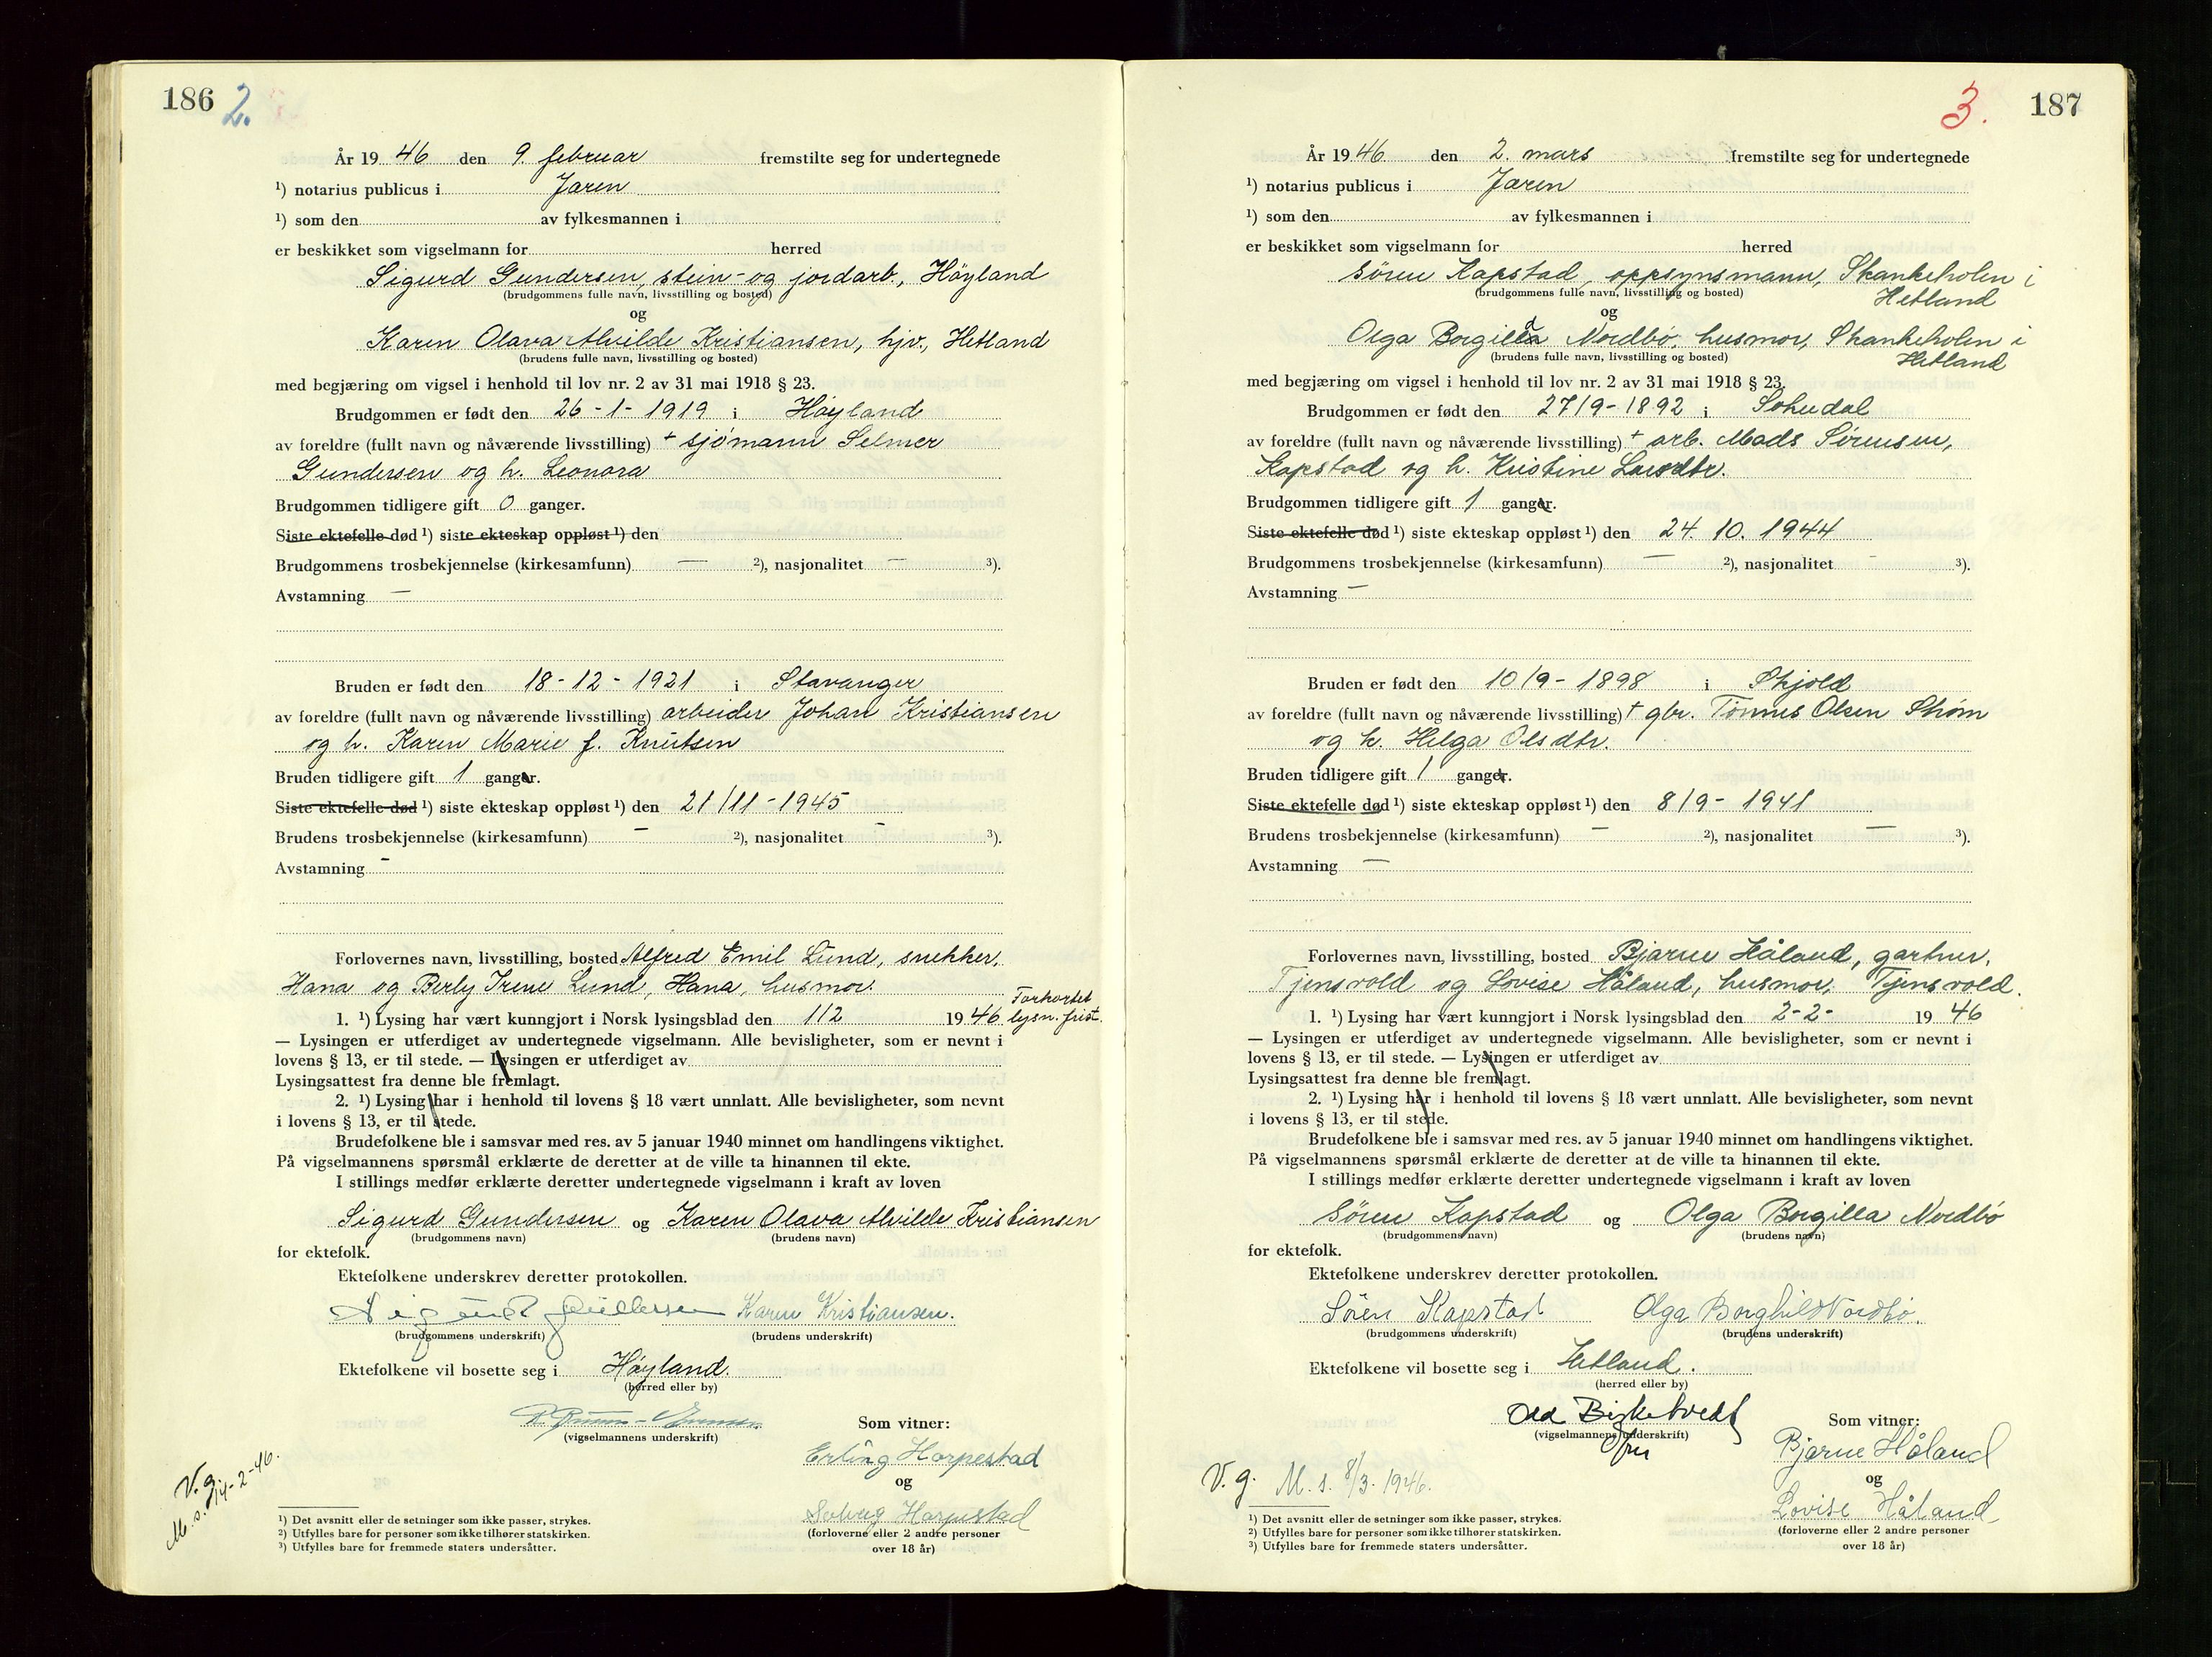 186 2.
År 19 46 den 9. februar fremstilte seg for undertegnede
¹) notarius publicus i Jæren
¹) som den av fylkesmannen i
er beskikket som vigselmann for herred
Sigurd Gundersen, stein- og jordarb., Høyland
(brudgommens fulle navn, livsstilling og bosted)
og
Karen Olava Alvilde Kristiansen, hjv., Hetland
(brudens fulle navn, livsstilling og bosted)
med begjæring om vigsel i henhold til lov nr. 2 av 31 mai 1918 § 23.
Brudgommen er født den 26-1-1919 i Høyland
av foreldre (fullt navn og nåværende livsstilling) + sjømann Selmer
Gundersen og h. Leonora
Brudgommen tidligere gift 0 ganger.
Siste ektefelle død ¹) siste ekteskap oppløst ¹) den
Brudgommens trosbekjennelse (kirkesamfunn) — ²), nasjonalitet — ³).
Avstamning —
Bruden er født den 18-12-1921 i Stavanger
av foreldre (fullt navn og nåværende livsstilling) arbeider Johan Kristiansen
og h. Karen Marie f. Knutsen
Bruden tidligere gift 1 ganger.
Siste ektefelle død ¹) siste ekteskap oppløst ¹) den 21/11-1945
Brudens trosbekjennelse (kirkesamfunn) — ²), nasjonalitet — ³).
Avstamning -
Forlovernes navn, livsstilling, bosted Alfred Emil Lund, snekker,
Hana og Berly Irene Lund, Hana, husmor.
1. ¹) Lysing har vært kunngjort i Norsk lysingsblad den 1/2 19 46. Forkortet lysn. frist.
— Lysingen er utferdiget av undertegnede vigselmann. Alle bevisligheter, som er nevnt i
lovens § 13, er til stede. — Lysingen er utferdiget av
Lysingsattest fra denne ble fremlagt.
2. ¹) Lysing har i henhold til lovens § 18 vært unnlatt. Alle bevisligheter, som nevnt
i lovens § 13, er til stede.
Brudefolkene ble i samsvar med res. av 5 januar 1940 minnet om handlingens viktighet.
På vigselmannens spørsmål erklærte de deretter at de ville ta hinannen til ekte.
I stillings medfør erklærte deretter undertegnede vigselmann i kraft av loven
Sigurd Gundersen og Karen Olava Alvilde Kristiansen
(brudgommens navn) (brudens navn)
for ektefolk.
Ektefolkene underskrev deretter protokollen.
Sigurd Gundersen Karen Kristiansen.
(brudgommens underskrift) (brudens underskrift)
Ektefolkene vil bosette seg i Høyland.
(herred eller by)
(vigselmannens underskrift)
Som vitner:
Erling Harpestad
og
Solveig Harpestad
(forloverne eller 2 andre personer
over 18 år)
V.g.
M.s. 14-2-46.
¹) Det avsnitt eller de setninger som ikke passer, strykes.
²) Utfylles bare for personer som ikke tilhører statskirken.
³) Utfylles bare for fremmede staters undersåtter.
3. 187
År 19 46 den 2. mars fremstilte seg for undertegnede
¹) notarius publicus i Jæren
¹) som den av fylkesmannen i
er beskikket som vigselmann for herred
Søren Kapstad, oppsynsmann, Skankeholen i
Hetland
(brudgommens fulle navn, livsstilling og bosted)
og
Olga Borgilda Nordbø, husmor, Skankeholen i
Hetland
(brudens fulle navn, livsstilling og bosted)
med begjæring om vigsel i henhold til lov nr. 2 av 31 mai 1918 § 23.
Brudgommen er født den 27/9-1892 i Sokndal
av foreldre (fullt navn og nåværende livsstilling) + arb. Mads Sørensen,
Kapstad og h. Kristine Larsdtr.
Brudgommen tidligere gift 1 ganger.
Siste ektefelle død ¹) siste ekteskap oppløst ¹) den 24. 10. 1944
Brudgommens trosbekjennelse (kirkesamfunn) — ²), nasjonalitet — ³).
Avstamning —
Bruden er født den 10/9-1898 i Skjold
av foreldre (fullt navn og nåværende livsstilling) + gbr. Tønnes Olsen
og h. Helga Olsdtr.
Bruden tidligere gift 1 ganger.
Siste ektefelle død ¹) siste ekteskap oppløst ¹) den 8/9-1941
Brudens trosbekjennelse (kirkesamfunn) — ²), nasjonalitet — ³).
Avstamning —
Forlovernes navn, livsstilling, bosted Bjarne Håland, gartner,
Tjensvold og Lovise Håland, husmor, Tjensvold.
1. ¹) Lysing har vært kunngjort i Norsk lysingsblad den 2-2- 19 46
— Lysingen er utferdiget av undertegnede vigselmann. Alle bevisligheter, som er nevnt i
lovens § 13, er til stede. — Lysingen er utferdiget av
Lysingsattest fra denne ble fremlagt.
2. ¹) Lysing har i henhold til lovens § 18 vært unnlatt. Alle bevisligheter, som nevnt
i lovens § 13, er til stede.
Brudefolkene ble i samsvar med res. av 5 januar 1940 minnet om handlingens viktighet.
På vigselmannens spørsmål erklærte de deretter at de ville ta hinannen til ekte.
I stillings medfør erklærte deretter undertegnede vigselmann i kraft av loven
Søren Kapstad og Olga Borgilla Nordbø
(brudgommens navn) (brudens navn)
for ektefolk.
Ektefolkene underskrev deretter protokollen.
Sören Kapstad Olga Borghild Nordbø.
(brudgommens underskrift) (brudens underskrift)
Ektefolkene vil bosette seg i Hetland.
(herred eller by)
Odd Birketvedt
(vigselmannens underskrift)
fm
Som vitner:
Bjarne Håland
og
Lovise Håland
(forloverne eller 2 andre personer
over 18 år)
V.g. M.s. 8/3. 1946.
¹) Det avsnitt eller de setninger som ikke passer, strykes.
²) Utfylles bare for personer som ikke tilhører statskirken.
³) Utfylles bare for fremmede staters undersåtter.